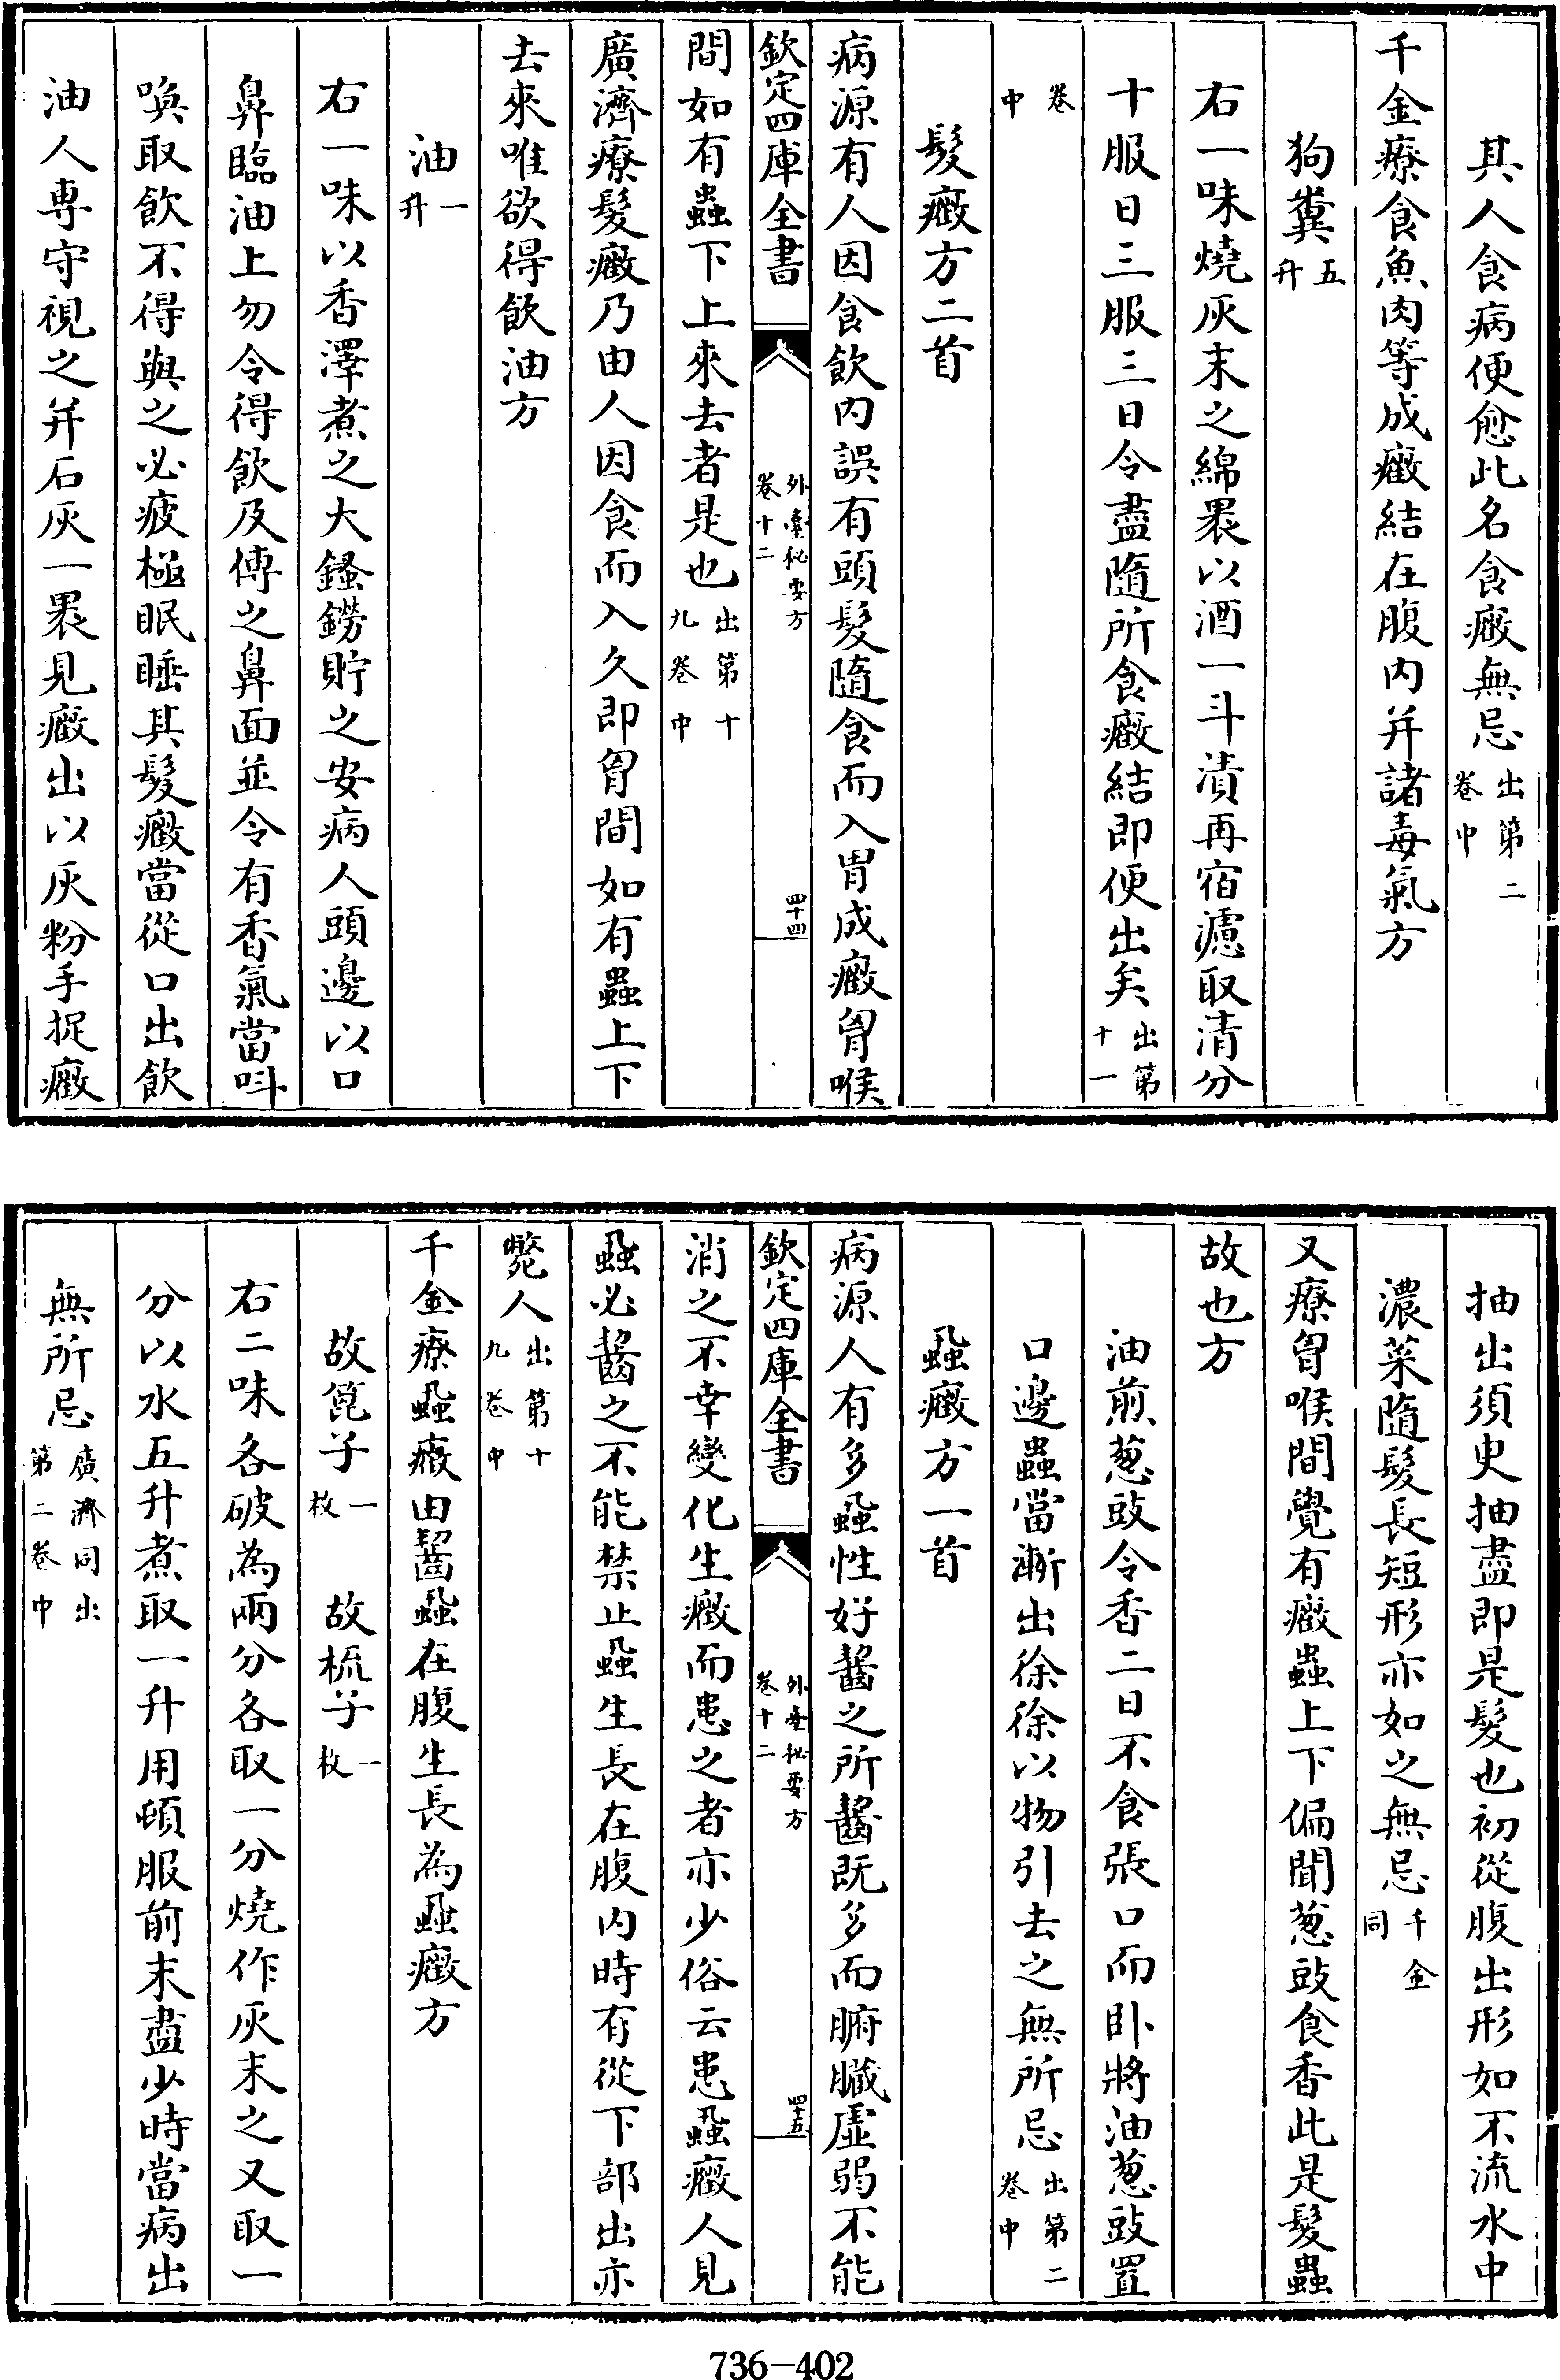 其人食病便愈此名食癥無忌出第二卷中
千金療食魚肉等成癥結在腹内并諸毒氣方
狗糞五升
右一味燒灰末之綿褁以酒一斗漬再宿濾取清分
十服日三服三日令盡隨所食癥結即便出矣出第十一
卷中
髮癥方二首
病源有人因食飲内誤有頭髮隨食而入胃成癥胷喉
欽定四庫全書 外臺秘要方卷十二 四十四
間如有蟲下上來去者是也出第十九卷中
廣濟療髮癥乃由人因食而入久即胷間如有蟲上下
去來唯欲得飲油方
油一升
右一味以香澤煮之大鏂鐒貯之安病人頭邊以口
鼻臨油上勿令得飲及傅之鼻面並令有香氣當叫
喚取飲不得與之必疲極眠睡其髮癥當從口出飲
油人專守視之并石灰一褁見癥出以灰粉手捉癥
抽出須臾抽盡即是髮也初從腹出形如不流水中
濃菜隨髮長短形亦如之無忌千金同
又療胷喉間覺有癥蟲上下偏聞葱豉食香此是髮蟲
故也方
油煎葱豉令香二日不食張口而卧將油葱豉置
口邊蟲當漸出徐徐以物引去之無所忌出第二卷中
蝨癥方一首
病源人有多蝨性好齧之所齧既多而腑臓虚弱不能
欽定四庫全書 外臺秘要方卷十二 四十五
消之不幸變化生癥而患之者亦少俗云患蝨癥人見
蝨必齧之不能禁止蝨生長在腹内時有從下部出亦
斃人出第十九卷中
千金療蝨癥由齧蝨在腹生長為蝨癥方
故箆子一枚 故梳子一枚
右二味各破為兩分各取一分燒作灰末之又取一
分以水五升煮取一升用頓服前末盡少時當病出
無所忌廣濟同出第二卷中
736-402